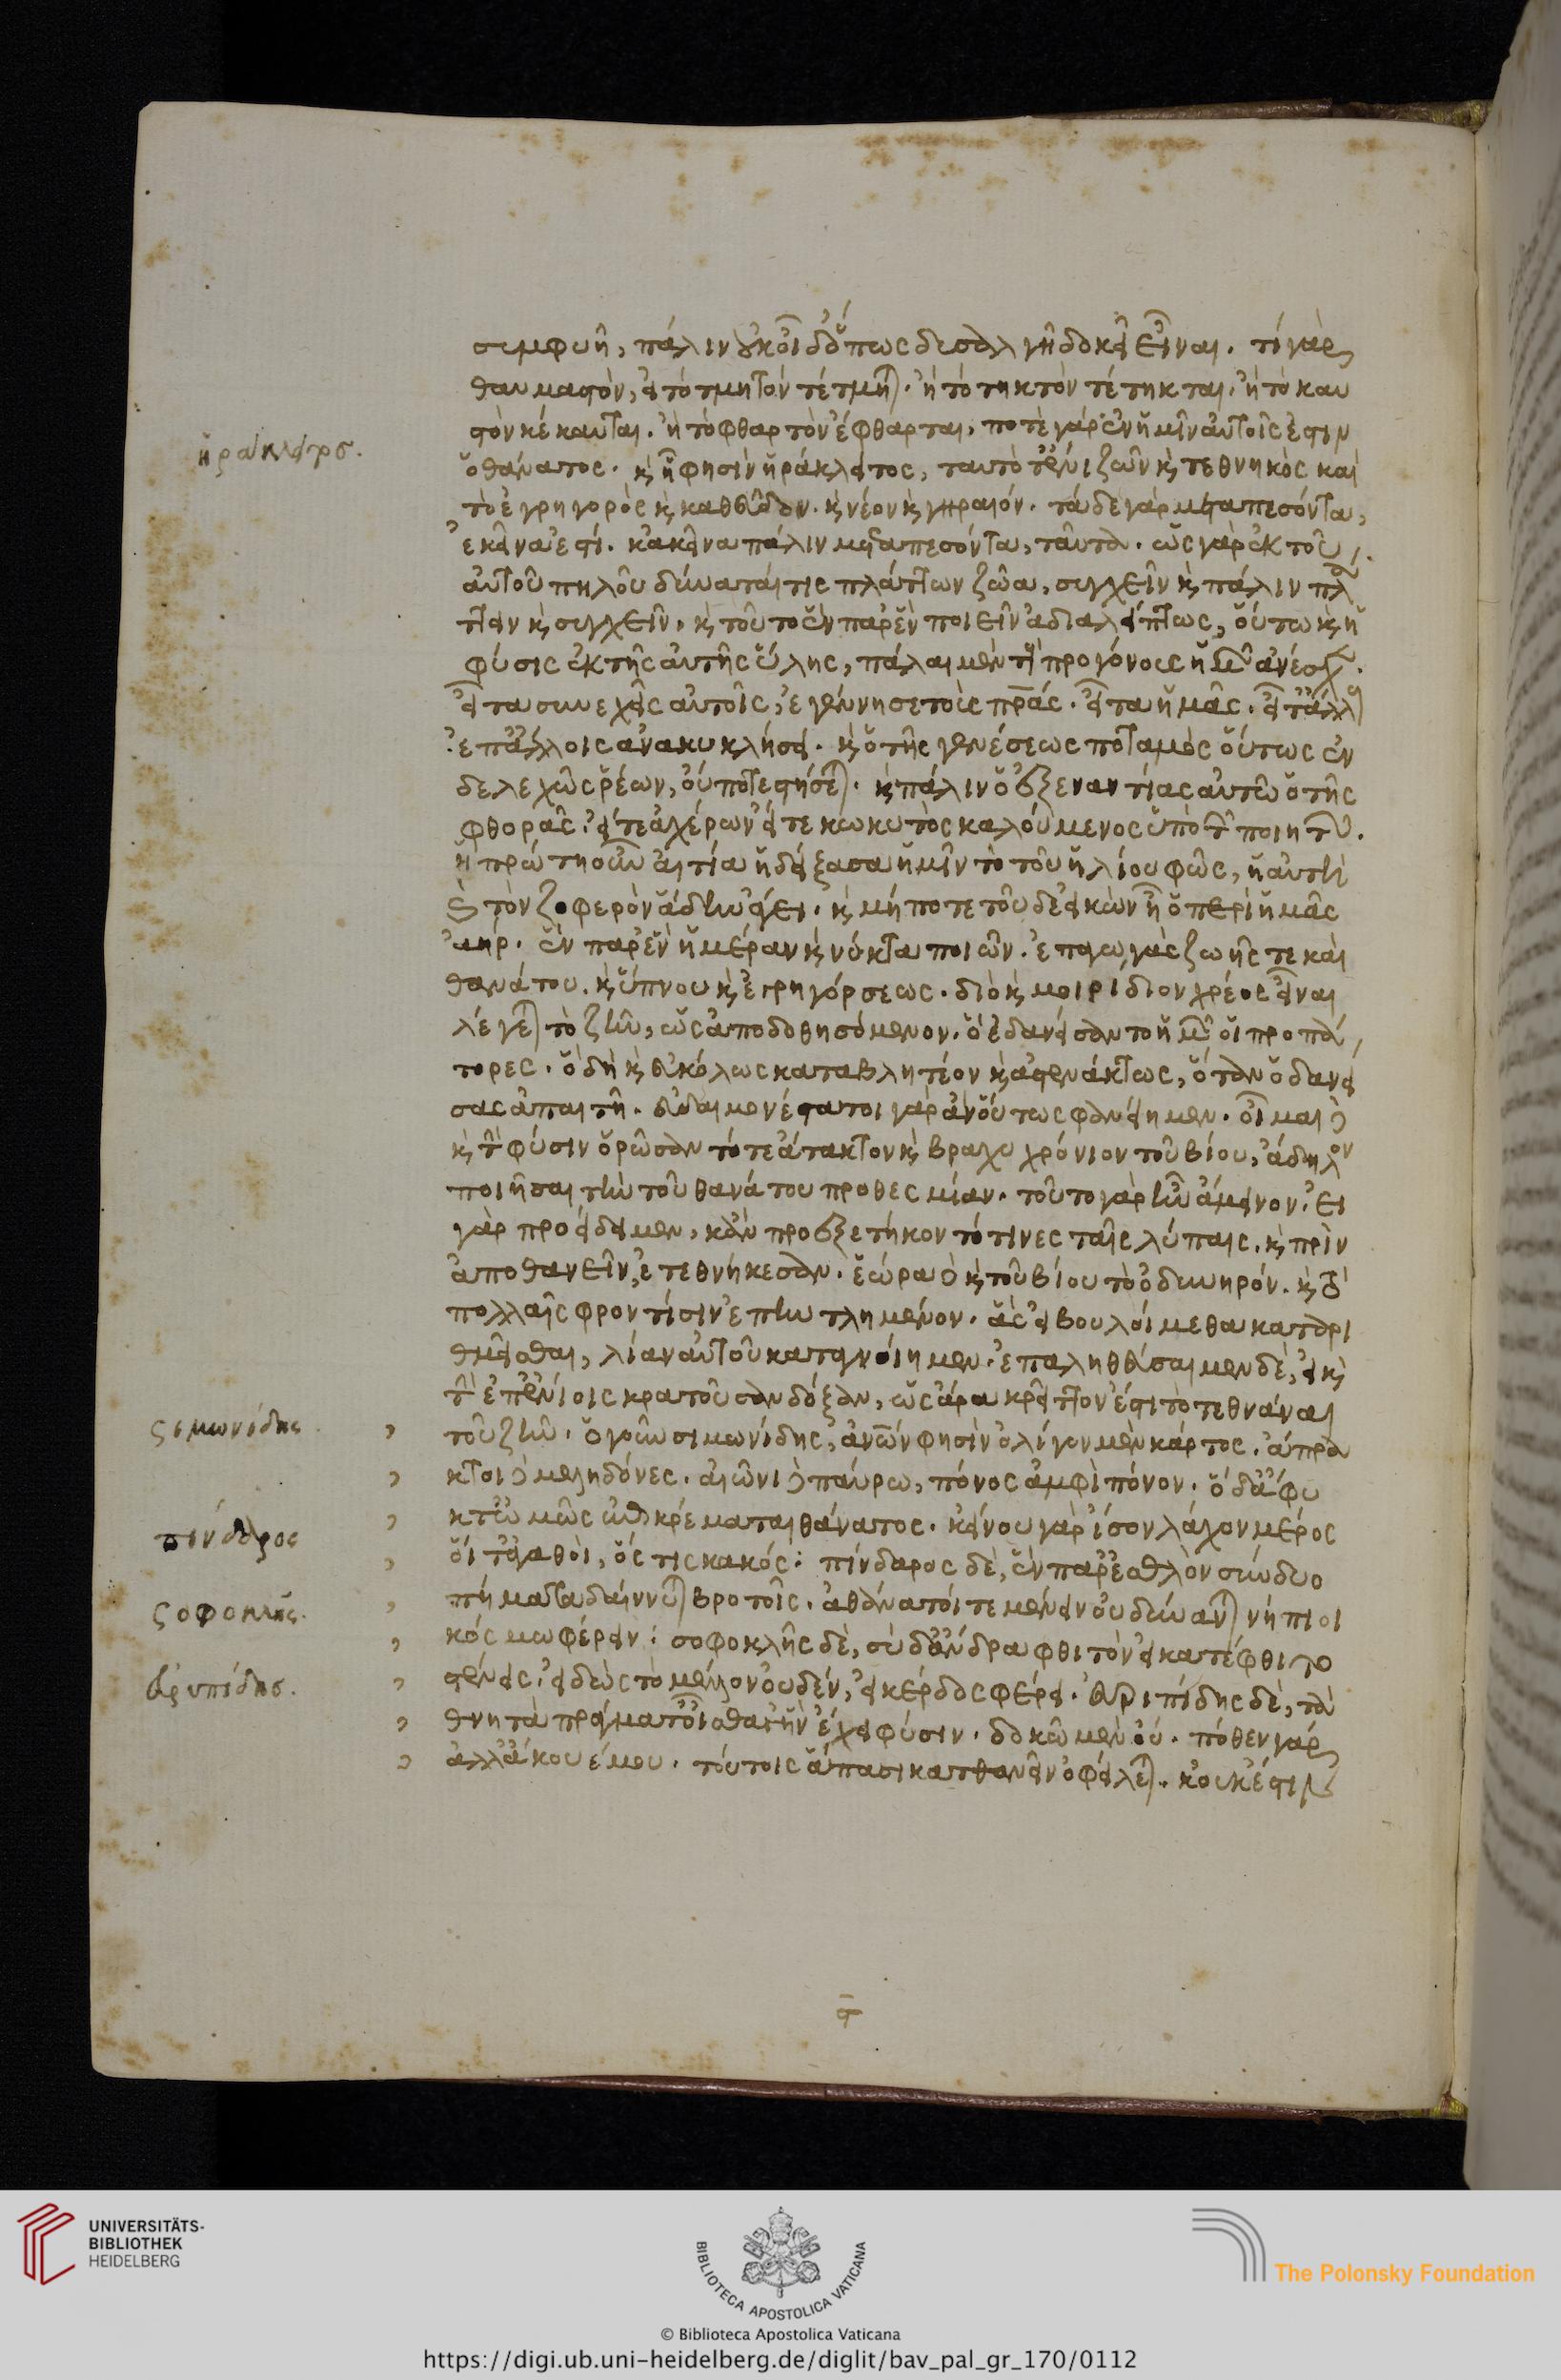 συμφυῆ, πάλιν οὐκ οἶδ' ὅπως δυσαλγῆ δοκεῖ εἶναι. τί γὰρ
θαυμαστόν, εἰ τὸ τμητὸν τέτμηται. ἢ τὸ τηκτὸν τέτηκται. ἢ τὸ καυ
στὸν κέκαυται. ἢ τὸ φθαρτὸν ἔφθαρται, ποτὲ γὰρ ἐν ἡμῖν αὐτοῖς ἔστιν
ἡράκλειτος.
ὁ θάνατος. καὶ ᾗ φησὶν ἡράκλειτος, ταυτὸ τ' ἔνι ζῶν καὶ τεθνηκὸς καὶ
τὸ ἐγρηγορὸς καὶ καθεῦδον. καὶ νέον καὶ γηραιόν. τάδε γὰρ μεταπεσόντα,
ἐκεῖνα ἐστί. κἀκεῖνα πάλιν μεταπεσόντα, ταῦτα. ὡς γὰρ ἐκ τοῦ
αὐτοῦ πηλοῦ δύναταί τις πλάττων ζῶα, συγχεῖν καὶ πάλιν πλά
ττειν καὶ συγχεῖν. καὶ τοῦτο ἓν παρ' ἓν ποιεῖν ἀδιαλείπτως, οὕτω καὶ ἡ
φύσις ἐκ τῆς αὐτῆς ὕλης, πάλαι μὲν τοὺς προγόνους ἡμῶν ἀνέσχεν.
εἶτα συνεχεῖς αὐτοῖς, ἐγέννησε τοὺς πρας. εἶτα ἡμᾶς. εἶτ' ἄλλους
ἐπ' ἄλλοις ἀνακυκλήσει. καὶ ὁ τῆς γενέσεως ποταμὸς οὕτως ἐν
δελεχῶς ῥέων, οὔποτε στήσεται. καὶ πάλιν ὁ ἐξεναντίας αὐτῶ ὁ τῆς
φθορᾶς. εἴτε ἀχέρων εἴτε κωκυτὸς καλούμενος ὑπὸ τῶν ποιητῶν.
ἡ πρώτη οὖν αἰτία ἡ δείξασα ἡμῖν τὸ τοῦ ἡλίου φῶς, ἡ αὐτὴ
καὶ τὸν ζοφερὸν ἅδην ἄγει. καὶ μήποτε τοῦδε εἰκὼν ᾖ ὁ περὶ ἡμᾶς
ἀήρ. ἓν παρ' ἓν ἡμέραν καὶ νύκτα ποιῶν. ἐπαγωγὰς ζωῆς τε καὶ
θανάτου. καὶ ὕπνου καὶ ἐγρηγόρσεως. διὸ καὶ μοιρίδιον χρέος εἶναι
λέγεται τὸ ζῆν, ὡς ἀποδοθησόμενον. ὃ ἐδανείσαντο ἡμῶν οἱ προπά
τορες. ὃ δὴ καὶ εὐκόλως καταβλητέον καὶ ἀστενάκτως, ὅταν ὁ δανεί
σας ἀπαιτῆ. εὐδαιμονέστατοι γὰρ ἂν οὕτως φανείημεν. οἶμαι δὲ
καὶ τὴν φύσιν ὁρῶσαν τό τε ἄτακτον καὶ βραχυχρόνιον τοῦ βίου, ἄδηλον
ποιῆσαι τὴν τοῦ θανάτου προθεσμίαν. τοῦτο γὰρ ἦν ἄμεινον. εἰ
γὰρ προήδειμεν, κἂν προεξετήκοντό τινες ταῖς λύπαις. καὶ πρὶν
ἀποθανεῖν, ἐτεθνήκεσαν. ἑώρα δὲ καὶ τοῦ βίου τὸ ὀδυνηρόν. καὶ τὸ
πολλαῖς φροντίσιν ἐπηντλημένον. ἃς εἰ βουλοίμεθα καταρι
θμεῖσθαι, λίαν αὐτοῦ καταγνοίημεν. ἐπαληθεύσαιμεν δὲ, εἰ καὶ
τὴν ἐπ' ἐνίοις κρατοῦσαν δόξαν, ὡς ἄρα κρεῖττον ἐστὶ τὸ τεθνάναι
σιμωνίδης.
τοῦ ζῆν. ὁ γοῦν σιμωνίδης, ἀνῶν φησὶν ὀλίγον μὲν κάρτος. ἄπρα
κτοι δὲ μεληδόνες. αἰῶνι δὲ παύρω, πόνος ἀμφὶ πόνον. ὁ δ' ἄφυ
κτος ὁμῶς ἐπικρέμαται θάνατος. κείνου γὰρ ἴσον λάχον μέρος
πίνδαρος
οἵ τ' ἀγαθοὶ, ὅς τις κακός: πίνδαρος δὲ, ἓν παρ' ἐσθλὸν σύνδυο
σοφοκλῆς.
πήματα δαίννυται βροτοῖς. ἀθάνατοί τε μὲν ἂν οὐ δύνανται νήπιοι
κόσμω φέρειν: σοφοκλῆς δὲ, σὺ δ' ἄνδρα φθιτὸν εἰ κατέφθιτο
εὐρυπίδης.
στένεις. εἰδεὼς τὸ μέλλον οὐδέν, εἰ κέρδος φέρει. εὐριπίδης δὲ, τὰ
θνητὰ πράγματ' οἶσθας ἣν ἔχει φύσιν. δοκῶ μὲν οὔ. πόθεν γάρ
ἀλλ' ἄκουέ μου. τούτοις ἅπασι κατθανεῖν ὀφείλεται. κοὐκ ἔστιν
UNIVERSITÄTS-
BIBLIOTHEK
HEIDELBERG
BIBLIOTECA APOSTOLICA VATICANA
The Polonsky Foundation
© Biblioteca Apostolica Vaticana
https://digi.ub.uni-heidelberg.de/diglit/bav_pal_gr_170/0112